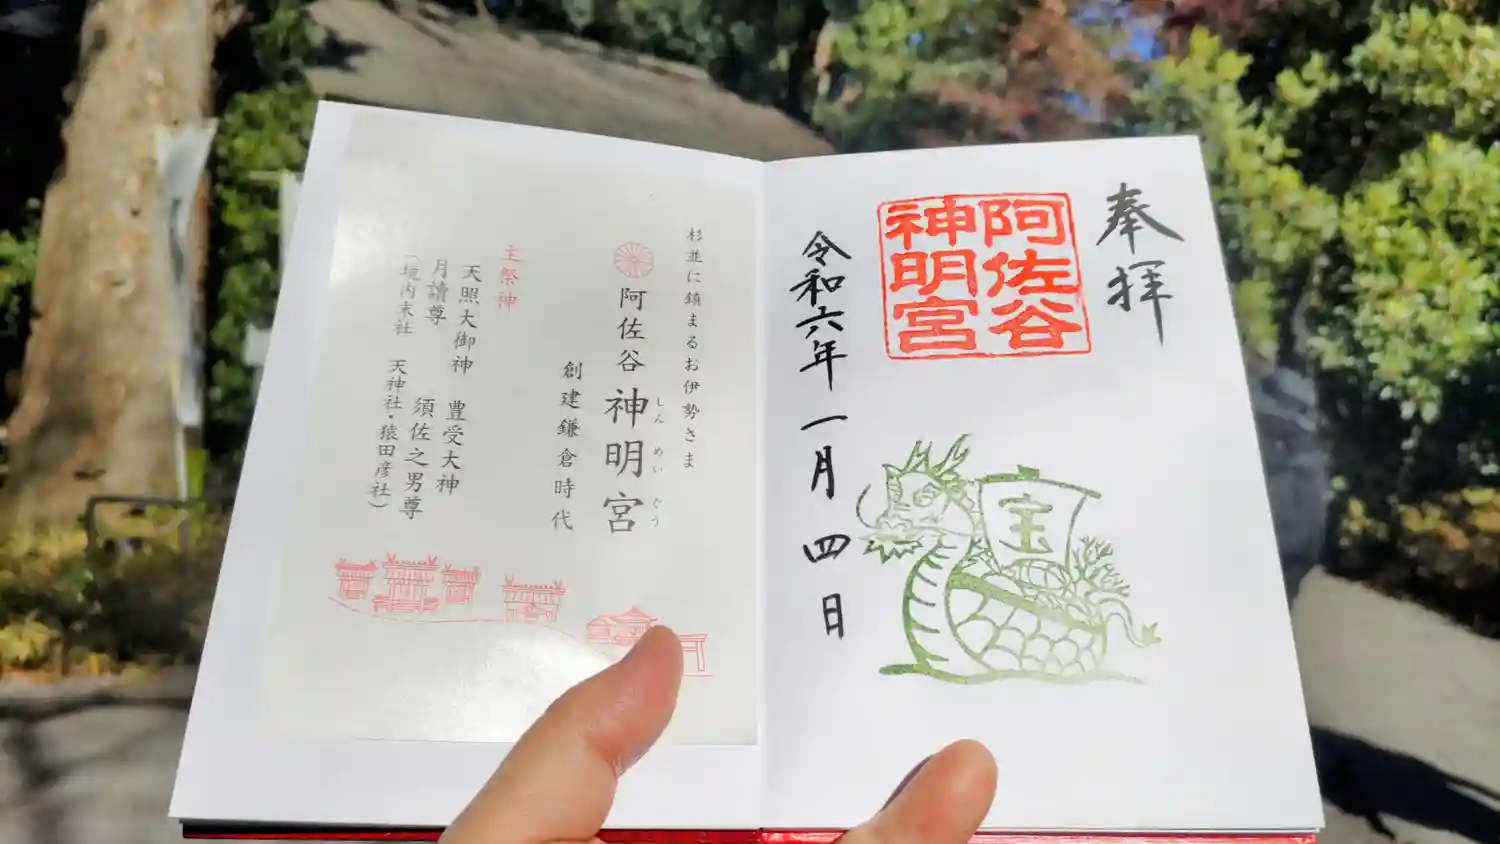 奉拝
阿佐谷
神明宮
令和六年一月四日
宝
杉並に鎮まるお伊勢さま
阿佐谷神明宮
しんめいぐう
創建鎌倉時代
主祭神
天照大御神 豊受大神
月讀尊 須佐之男尊
(境内末社 天神社・猿田彦社)